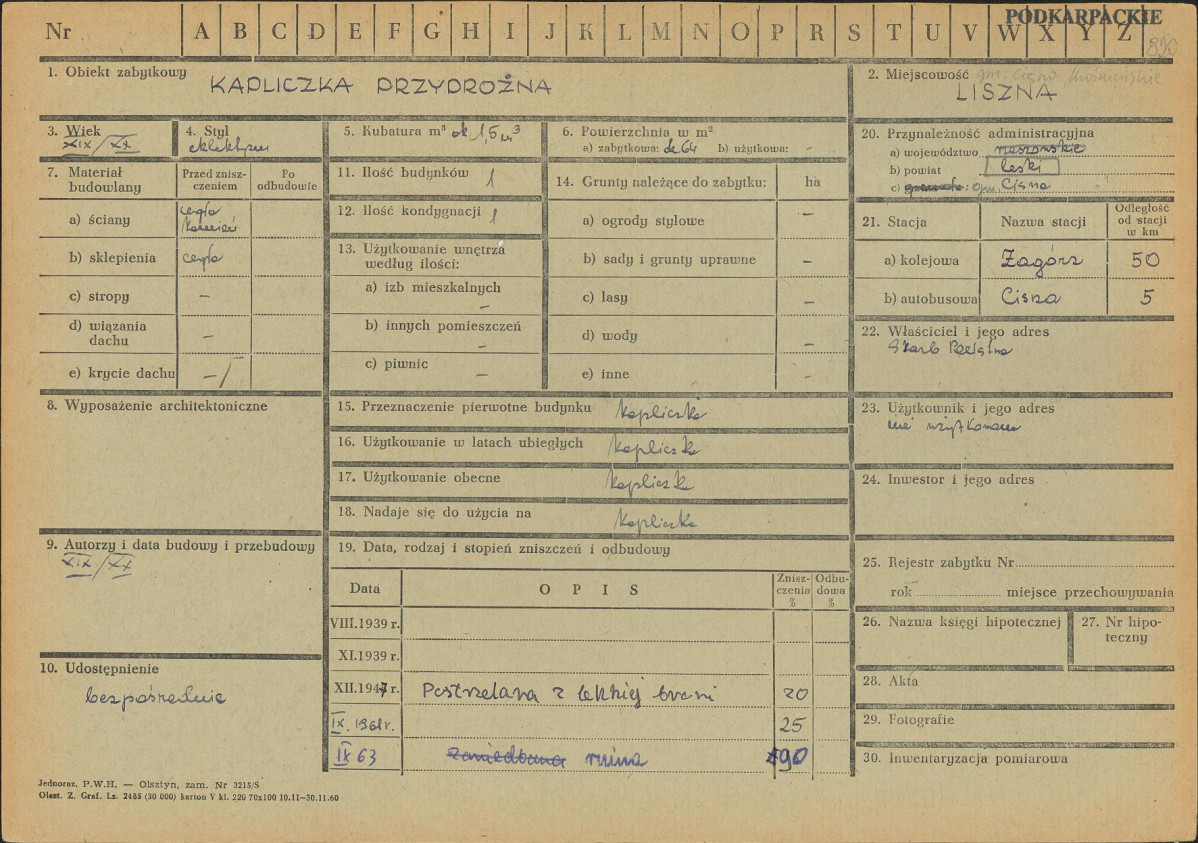 PODKARPACKIE
Nr A B C D E F G H I J K L M N O P R S T U V W X Y Z
890
1. Obiekt zabytkowy KAPLICZKA PRZYDROŻNA
2. Miejscowość gm. Cisna, krośnieńskie
LISZNA
3. Wiek
XIX/XX
4. Styl
eklektyzm
5. Kubatura m³ ok 1,5 m³
6. Powierzchnia w m²
a) zabytkowa: ok. 64 b) użytkowa: -
7. Materiał budowlany
Przed zniszczeniem
Po odbudowie
a) ściany cegła kamień
b) sklepienia cegła
c) stropy —
d) wiązania dachu —
e) krycie dachu —
8. Wyposażenie architektoniczne
9. Autorzy i data budowy i przebudowy
XIX/XX
10. Udostępnienie
bezpośrednie
11. Ilość budynków 1
12. Ilość kondygnacji 1
13. Użytkowanie wnętrza
według ilości:
a) izb mieszkalnych —
b) innych pomieszczeń —
c) piwnic —
14. Grunty należące do zabytku: ha
a) ogrody stylowe —
b) sady i grunty uprawne —
c) lasy —
d) wody —
e) inne —
15. Przeznaczenie pierwotne budynku kapliczka
16. Użytkowanie w latach ubiegłych kapliczka
17. Użytkowanie obecne kapliczka
18. Nadaje się do użycia na kapliczka
19. Data, rodzaj i stopień zniszczeń i odbudowy
Data OPIS Zniszczenia % Odbudowa %
VIII.1939 r.
XI.1939 r.
XII.1947 r. Postrzelana z lekkiej broni 20
IX. 1961r. 25
IX 63 zaniedbana ruina 90
20. Przynależność administracyjna
a) województwo rzeszowskie
b) powiat leski
c) gromada: gm. Cisna
21. Stacja Nazwa stacji Odległość od stacji w km
a) kolejowa Zagórz 50
b) autobusowa Cisna 5
22. Właściciel i jego adres
Skarb Państwa
23. Użytkownik i jego adres
nie użytkowana
24. Inwestor i jego adres
25. Rejestr zabytku Nr
rok miejsce przechowywania
26. Nazwa księgi hipotecznej
27. Nr hipoteczny
28. Akta
29. Fotografie
30. Inwentaryzacja pomiarowa
Jednoraz. P.W.H. — Olsztyn, zam. Nr 3215/S
Olszt. Z. Graf. Lz. 2485 (30 000) karton V kl. 220 70x100 10.11—30.11.60